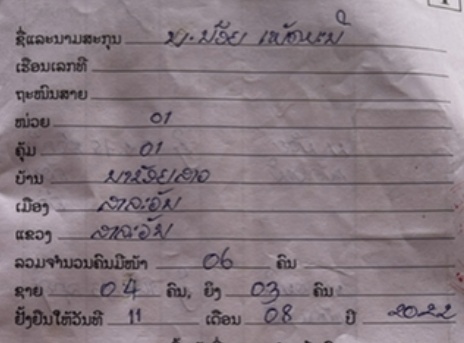 ຊື່ແລະນາມສະກຸນ ນ.ນ້ອຍ
ເຮືອນເລກທີ
ຖະໜົນສາຍ
ໜ່ວຍ 01
ຄຸ້ມ 01
ບ້ານ
ເມືອງ ສາລະວັນ
ແຂວງ ສາລະວັນ
ລວມຈຳນວນຄົນມີໜ້າ 06 ຄົນ
ຊາຍ 04 ຄົນ, ຍິງ 03 ຄົນ
ຢັ້ງຢືນໃຫ້ວັນທີ 11 ເດືອນ 08 ປີ 2022